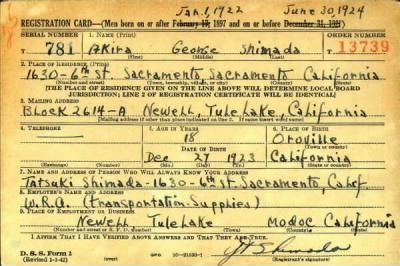 Jan. 1, 1922 June 30, 1924
REGISTRATION CARD—(Men born on or after February 17, 1897 and on or before December 31, 1921)
SERIAL NUMBER 1. NAME (Print) ORDER NUMBER
781 Akira George Shimada 13739
(First) (Middle) (Last)
2. PLACE OF RESIDENCE (Print)
1630-6th St. Sacramento, Sacramento California
(Number and street) (Town, township, village, or city) (County) (State)
[THE PLACE OF RESIDENCE GIVEN ON THE LINE ABOVE WILL DETERMINE LOCAL BOARD
JURISDICTION; LINE 2 OF REGISTRATION CERTIFICATE WILL BE IDENTICAL]
3. MAILING ADDRESS
Block 2614-A Newell, Tule Lake, California
[Mailing address if other than place indicated on line 2. If same insert word same]
4. TELEPHONE 5. AGE IN YEARS 6. PLACE OF BIRTH
18 Oroville
DATE OF BIRTH (Town or county)
Dec 27 1923 California
(Exchange) (Number) (Mo.) (Day) (Yr.) (State or country)
7. NAME AND ADDRESS OF PERSON WHO WILL ALWAYS KNOW YOUR ADDRESS
Tatsuki Shimada-1630-6th St. Sacramento, Calif.
8. EMPLOYER'S NAME AND ADDRESS
W.R.A. (Transportation Supplies)
9. PLACE OF EMPLOYMENT OR BUSINESS
Newell Tule Lake Modoc California
(Number and street or R. F. D. number) (Town) (County) (State)
I AFFIRM THAT I HAVE VERIFIED ABOVE ANSWERS AND THAT THEY ARE TRUE.
D. S. S. Form 1
(Revised 1-1-42) (over) 16—21630-1 Shimada